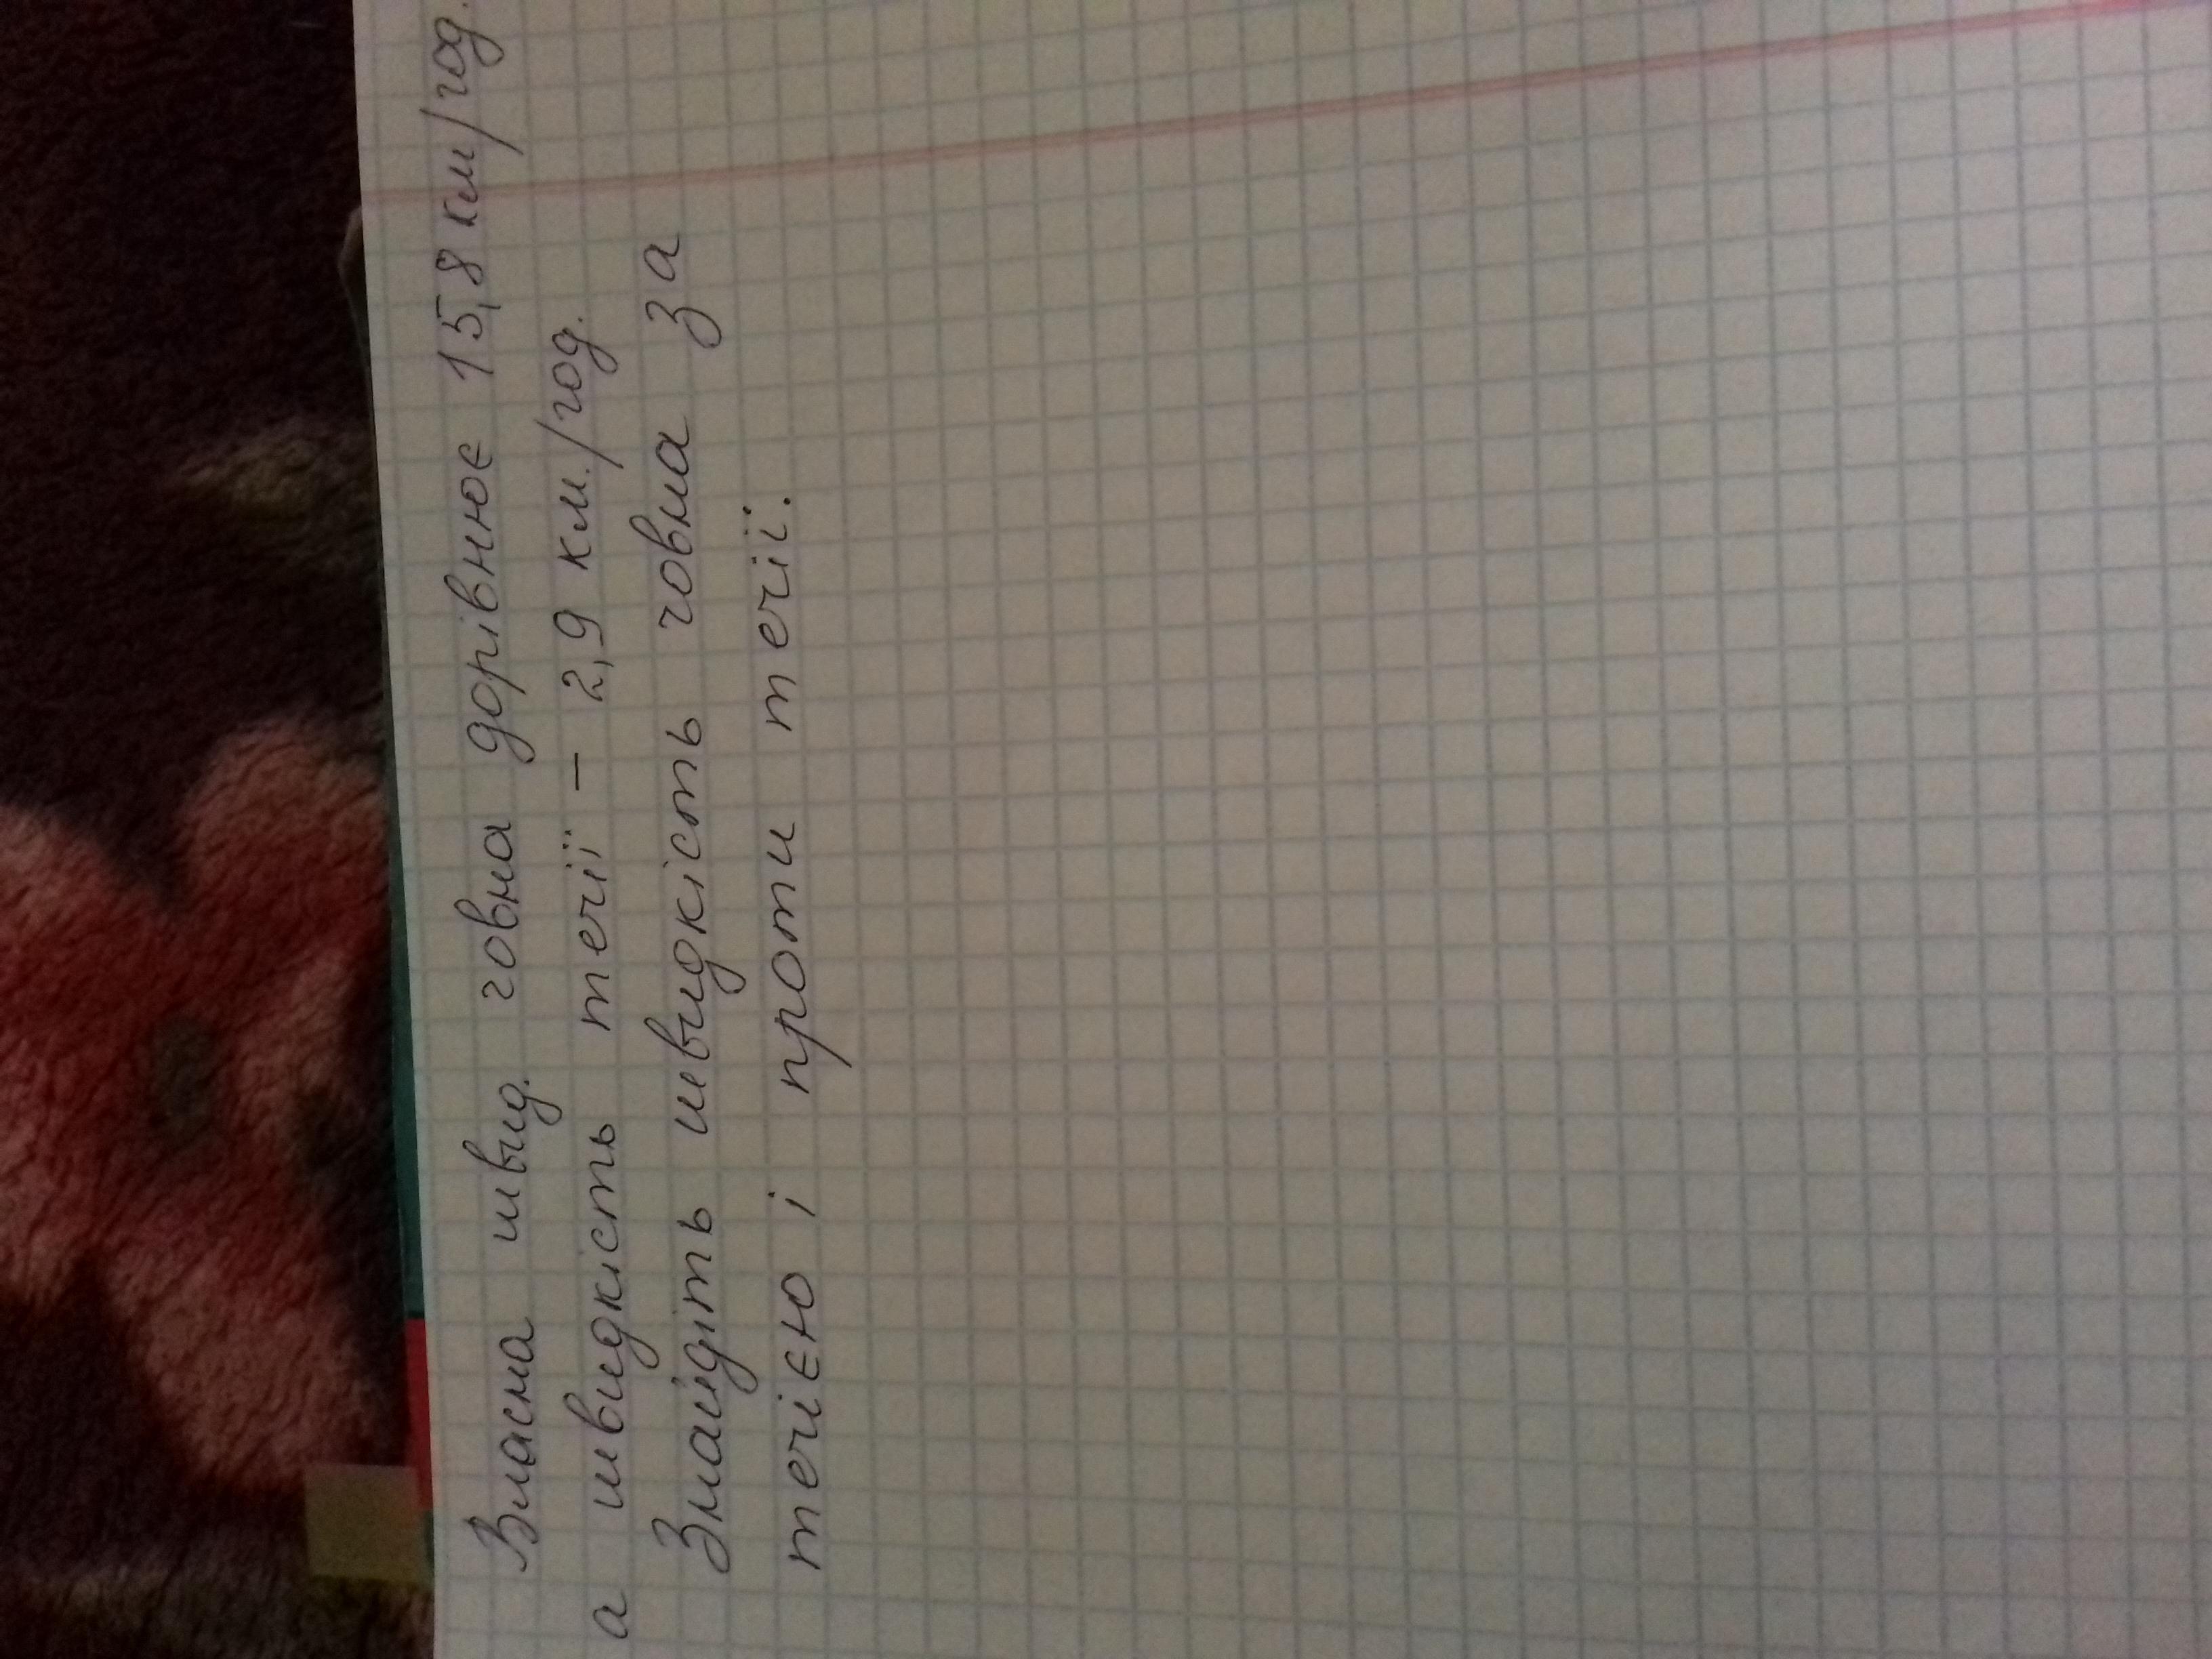 Власна швид. човна дорівнює 15,8 км/год.
а швидкість течії – 2,9 км./год.
Знайдіть швидкість човна за
течією і проти течії.